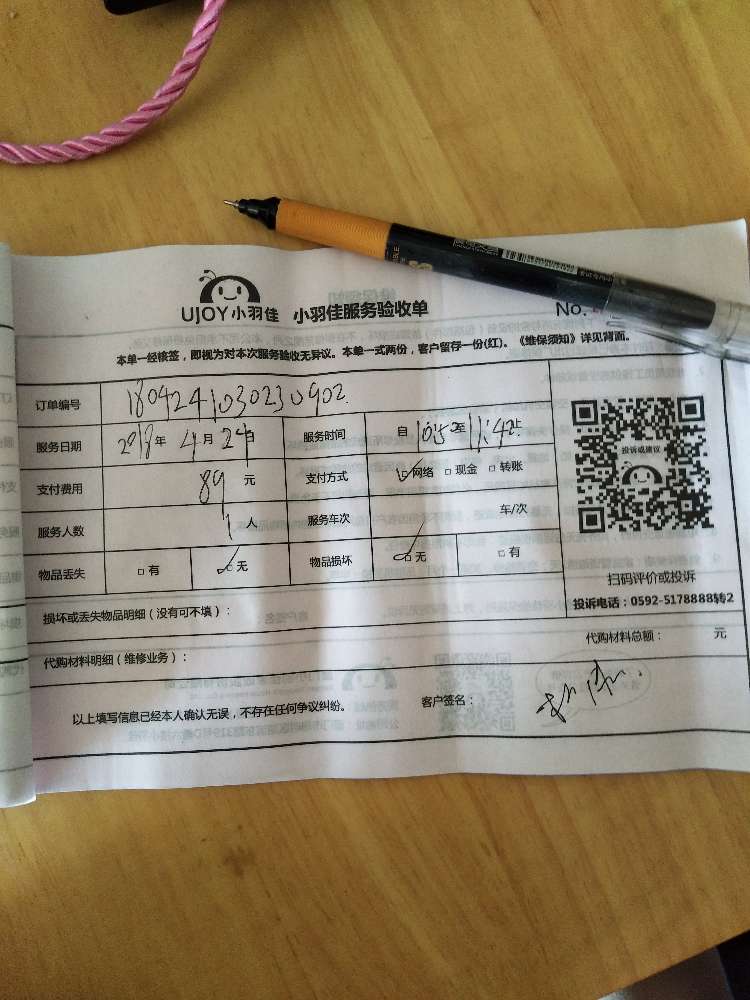 UJOY小羽佳 小羽佳服务验收单 No.
本单一经核签，即视为对本次服务验收无异议。本单一式两份，客户留存一份(红)。《维保须知》详见背面。
订单编号 1804241030230902
服务日期 2018年4月24日 服务时间 自10:50至11:42止
支付费用 89元 支付方式 ☑网络 □现金 □转账
服务人数 1人 服务车次 车/次
物品丢失 □有 ☑无 物品损坏 ☑无 □有
投诉或建议
扫码评价或投诉
投诉电话：0592-5178888转2
损坏或丢失物品明细（没有可不填）：
代购材料明细（维修业务）： 代购材料总额： 元
以上填写信息已经本人确认无误，不存在任何争议纠纷。 客户签名：